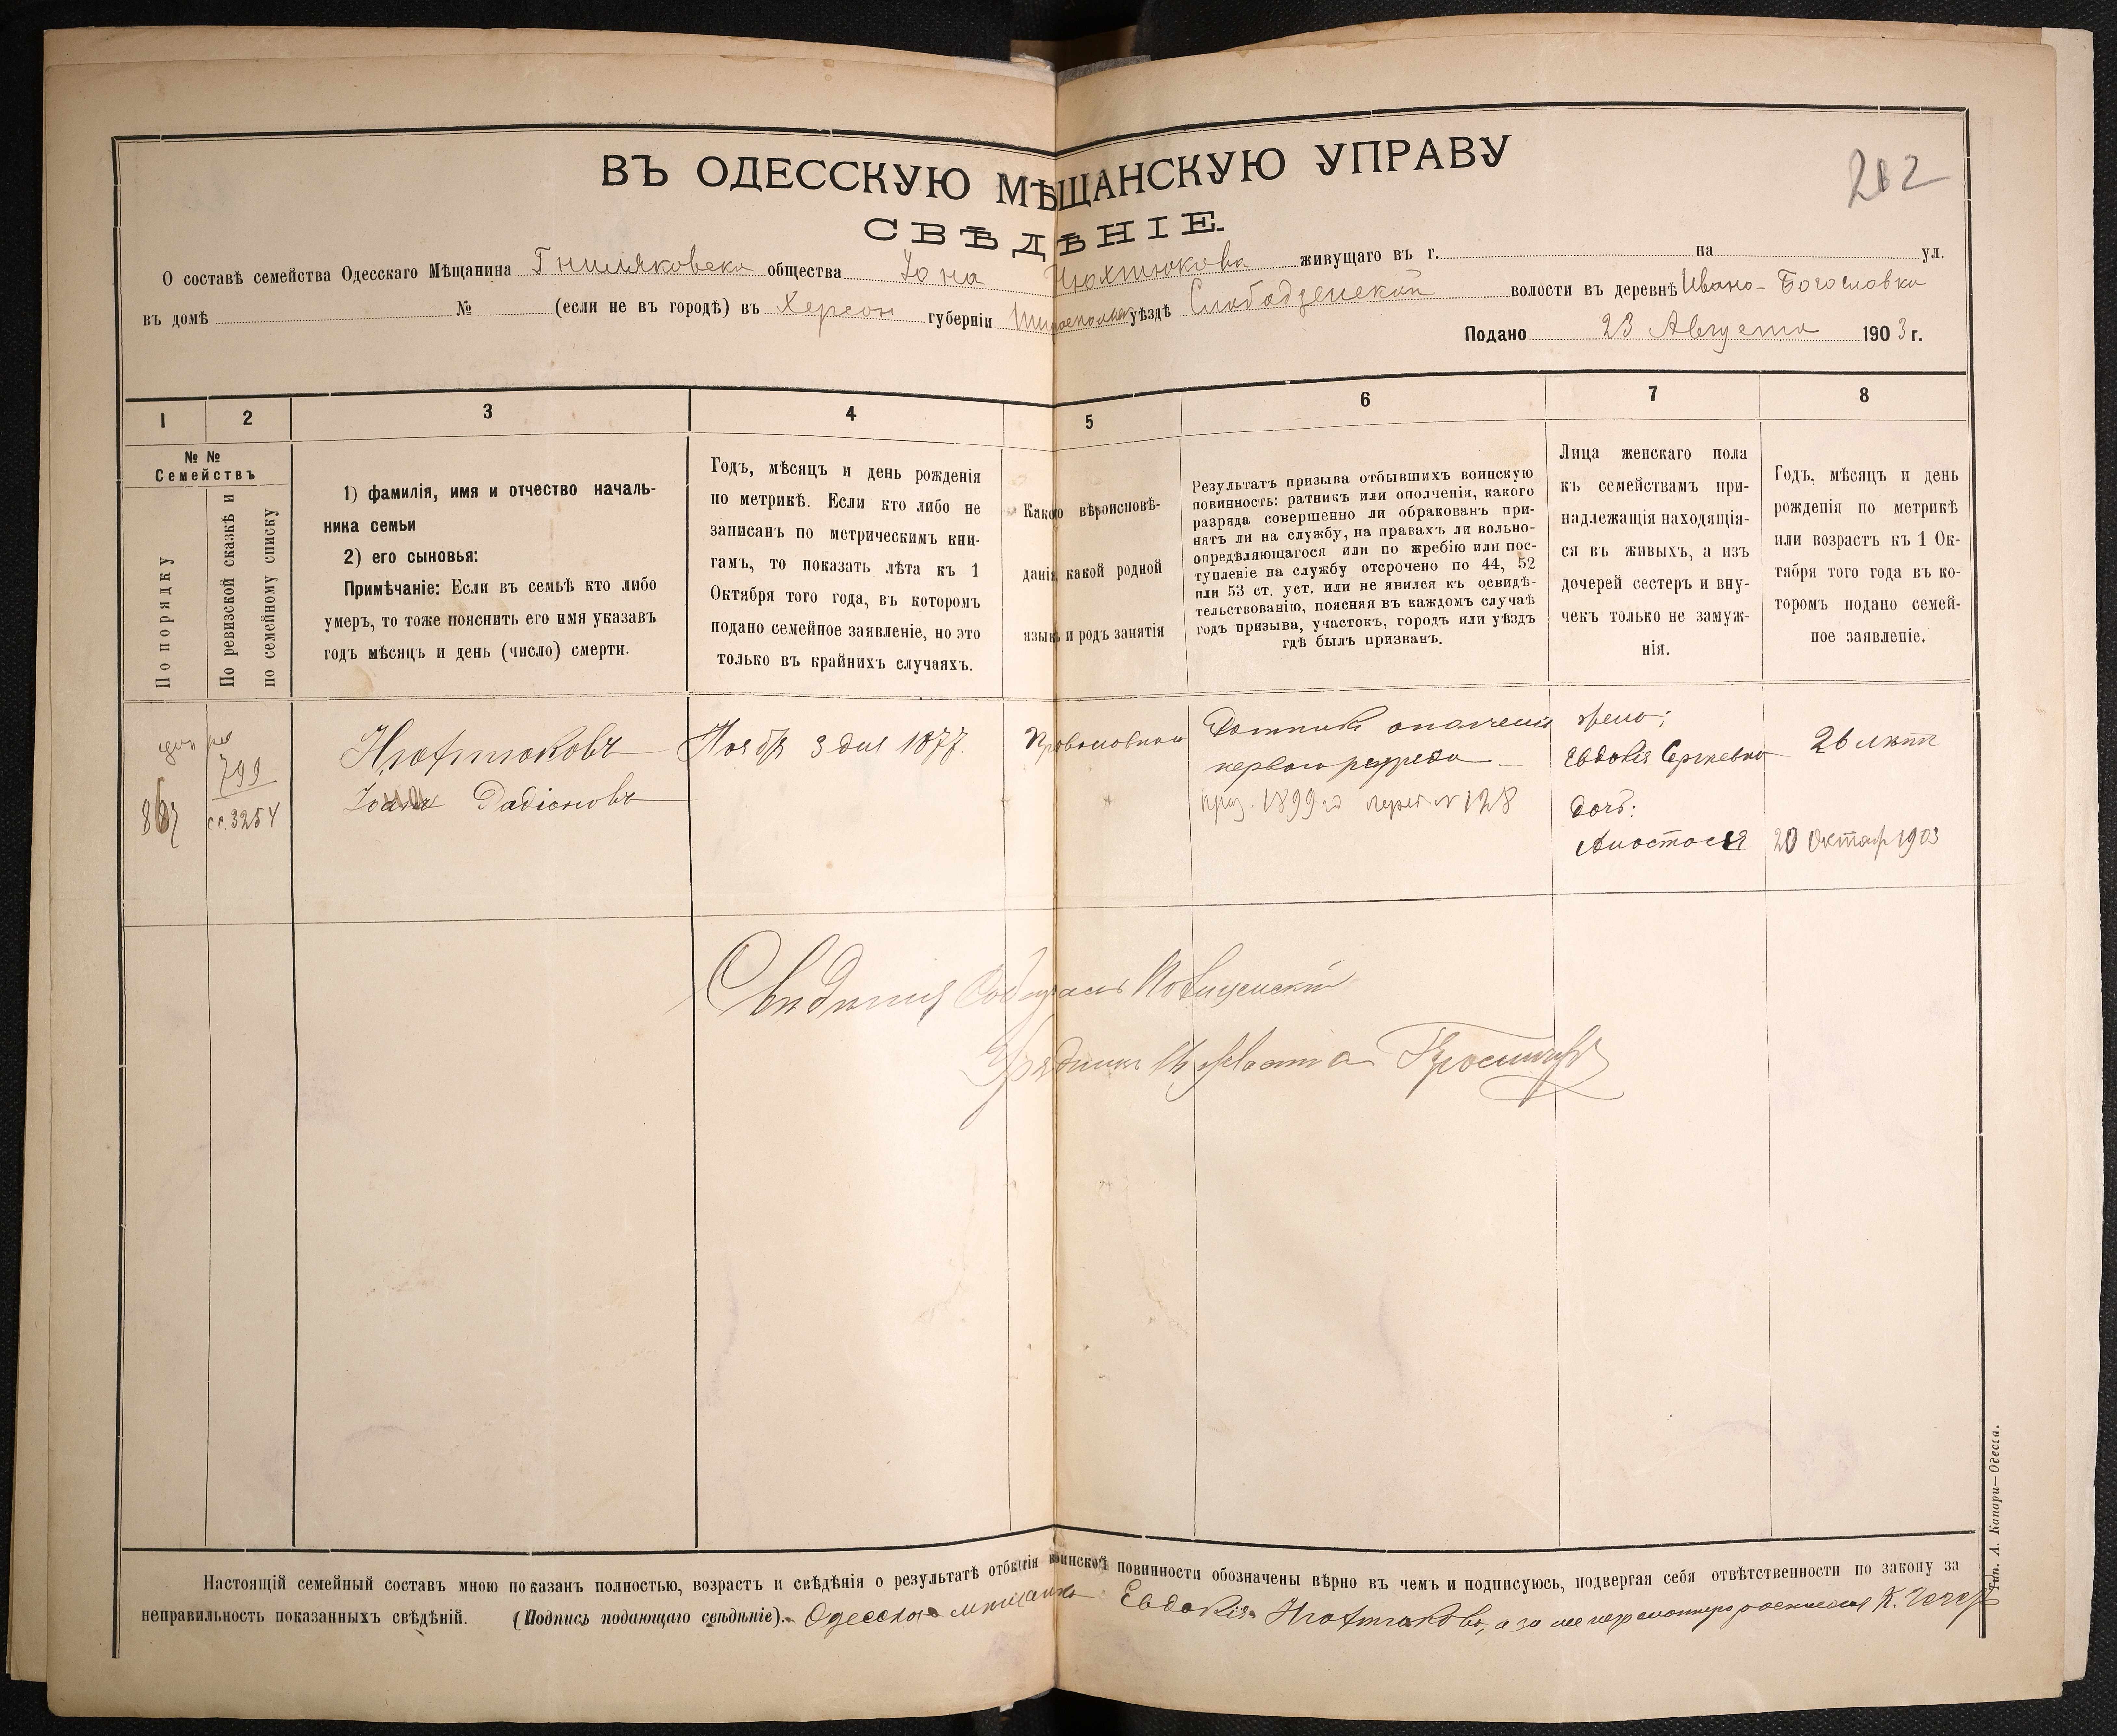 ВЪ ОДЕССКУЮ МѢЩАНСКУЮ УПРАВУ
212
СВѢДѢНІЕ.
О составѣ семейства Одесскаго Мѣщанина Гниляковска общества Іона Нюхтикова живущаго въ г. на ул.
въ домѣ № (если не въ городѣ) въ Херсон губерніи уѣздѣ Слободзейской волости въ деревнѣ Ивано-Богословка
Подано 23 Августа 1903 г.
1 2 3 4 5 6 7 8
№ №
Семействъ
По порядку
По ревизской сказкѣ и
по семейному списку
1) фамилія, имя и отчество началь-
ника семьи
2) его сыновья:
Примѣчаніе: Если въ семьѣ кто либо
умеръ, то тоже пояснить его имя указавъ
годъ мѣсяцъ и день (число) смерти.
Годъ, мѣсяцъ и день рожденія
по метрикѣ. Если кто либо не
записанъ по метрическимъ кни-
гамъ, то показать лѣта къ 1
Октября того года, въ которомъ
подано семейное заявленіе, но это
только въ крайнихъ случаяхъ.
Какого вѣроисповѣ-
данія, какой родной
языкъ и родъ занятія
Результатъ призыва отбывшихъ воинскую
повинность: ратникъ или ополченія, какого
разряда совершенно ли обракованъ при-
нятъ ли на службу, на правахъ ли вольно-
опредѣляющагося или по жребію или пос-
тупленіе на службу отсрочено по 44, 52
или 53 ст. уст. или не явился къ освидѣ-
тельствованію, поясняя въ каждомъ случаѣ
годъ призыва, участокъ, городъ или уѣздъ
гдѣ былъ призванъ.
Лица женскаго пола
къ семействамъ при-
надлежащія находящія-
ся въ живыхъ, а изъ
дочерей сестеръ и вну-
чекъ только не замуж-
нія.
Годъ, мѣсяцъ и день
рожденія по метрикѣ
или возрастъ къ 1 Ок-
тября того года въ ко-
торомъ подано семей-
ное заявленіе.
799
сс. 3254
Нюхтиковъ
Радіоновъ
Ноябр 3 дня 1877.
Православном
Ратник ополчения
первого разряда
приз. 1899 г. № 128
жена;
Евдокія Сергеевна
26 лѣтъ
дочь:
Анастасія
20 Октяб 1903
Сведения Собирал
Урядник
Настоящій семейный составъ мною показанъ полностью, возрастъ и свѣдѣнія о результатѣ отбытія воинской повинности обозначены вѣрно въ чемъ и подписуюсь, подвергая себя отвѣтственности по закону за
неправильность показанныхъ свѣдѣній. (Подпись подающаго свѣдѣніе). Одесская мещанка Евдокія Нюхтикова, а за неграмотную расписался К.
Тип. А. Капари—Одесса.